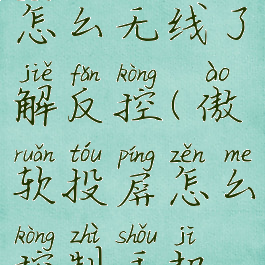 怎么无线了
jiě fǎn kòng ào
解反控(傲
ruǎn tóu píng zěn me
软投屏怎么
kòng zhì shǒu jī
控制手机